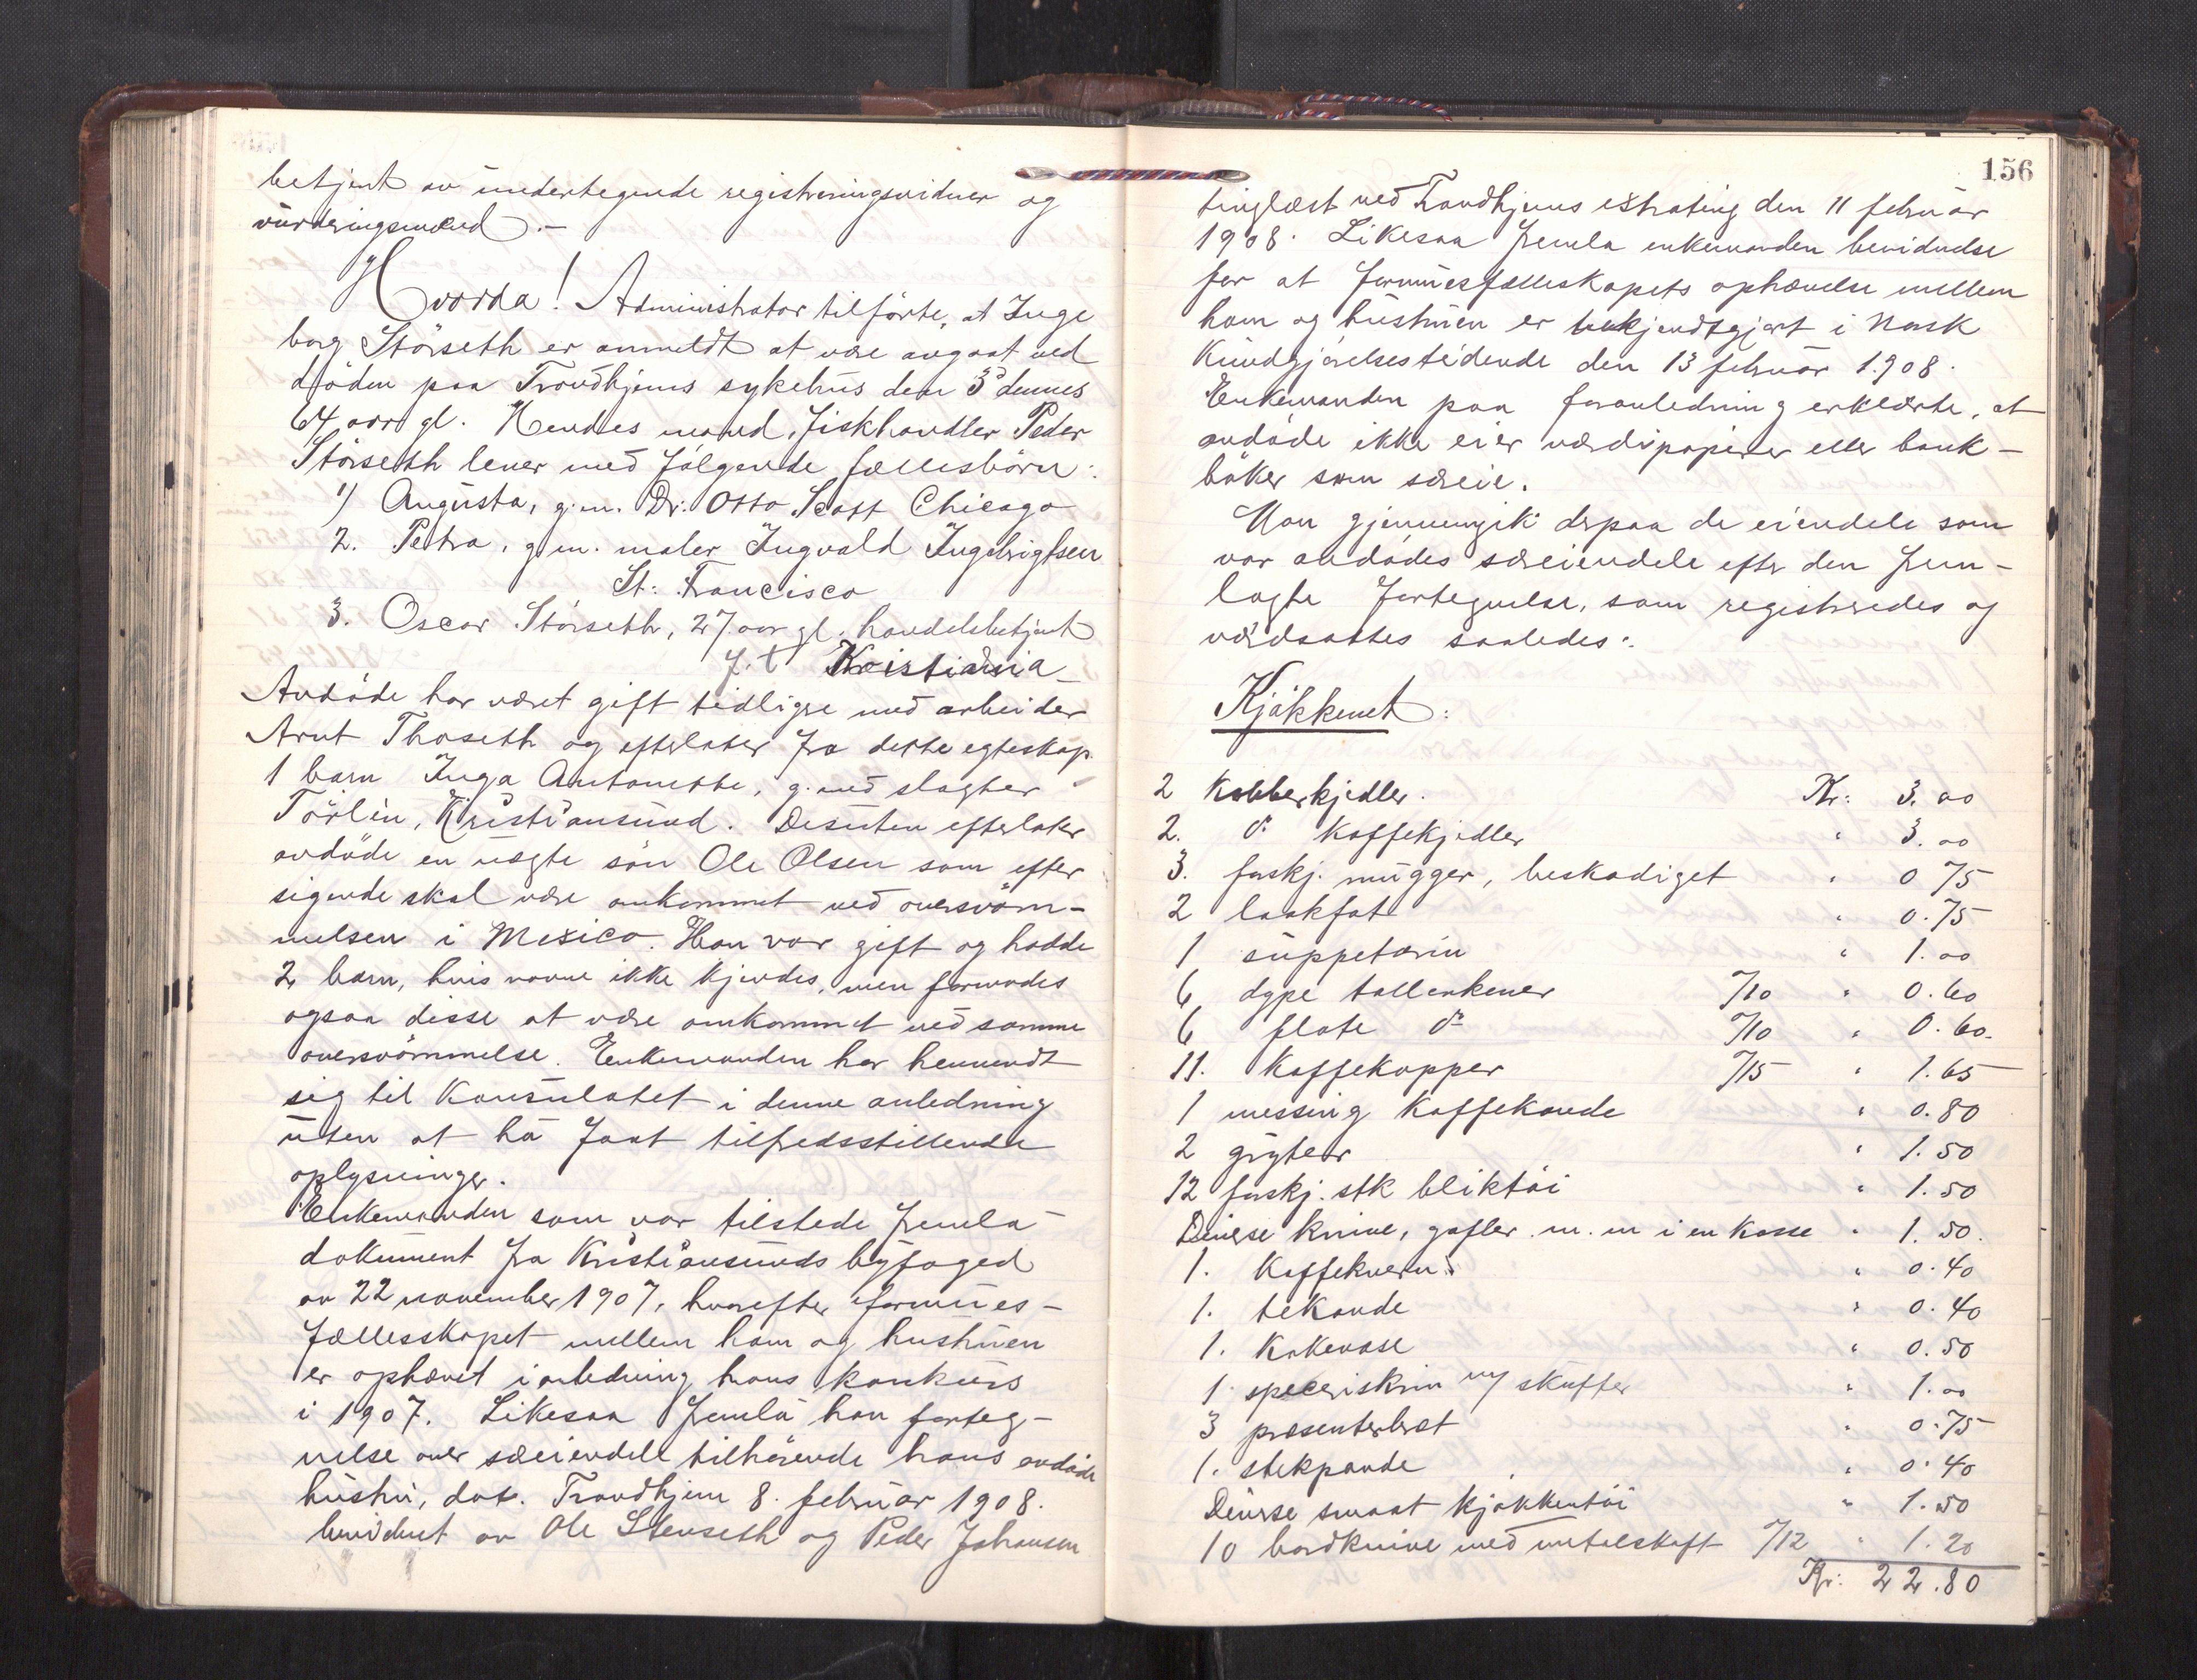 betjent av undertegnede registreringsvidner og
vurderingsmænd.—
Hvorda! Administrator tilførte, at Inge
borg Störseth er anmeldt at være avgaat ved
döden paa Trondhjems sykehus den 3' dennes
64 aar gl. Hendes mand, fiskhandler Peder
Störseth lever med følgende fællesbörn:
1) Augusta, g.m. Dr. Otto Scott Chicago
2. Petra, g.m. maler Ingvald Ingebrigtsen
St: Francisco
3. Oscar Störseth, 27 aar gl. handelsbetjent
f.t Kristiania
Avdöde har været gift tidligre med arbeider
Arnt Thoseth og efterlater fra dette egteskap
1 barn Inga Antonette, g. med slagter
Törlin, Kristiansund. Desuten efterlater
avdöde en uægte sön Ole Olsen som efter
sigende skal være omkommet ved oversvöm-
melsen i Mexico. Han var gift og hadde
2 barn, hvis navne ikke kjendes, men formodes
ogsaa disse at være omkommet ved samme
oversvömmelse. Enkemanden har henvendt
sig til Konsulatet i denne anledning
uten at ha faat tilfredsstillende
oplysninger.
Enkemanden som var tilstede fremla
dokument fra Kristiansunds byfoged
av 22 november 1907, hvorefter formues-
fællesskapet mellem ham og hustruen
er ophævet i anledning hans konkurs
i 1907. Likesaa fremla han forteg-
nelse over særeiendele tilhörende hans avdöde
hustru, dat. Trondhjem 8. februar 1908.
bevidnet av Ole Stenseth og Peder Johansen
156
tinglæst ved Trondhjems extrating den 11 februar
1908. Likesaa fremla enkemanden bevidnelse
for at formuesfælleskapets ophævelse mellem
ham og hustruen er bekjendtgjort i Norsk
Kundgjörelsestidende den 13 februar 1908.
Enkemanden paa foranledning erklærte, at
avdöde ikke eier værdipapirer eller bank-
böker som særeie.
Man gjennemgik derpaa de eiendele som
var avdödes særeiendele efter den frem-
lagte fortegnelse, som registreredes og
værdsattes saaledes:
Kjökkenet:
2 Kobberkjedler. Kr: 3.00
2. do Kaffekjedler " 3.00
3. forskj. mugger, beskadiget " 0 75
2 laakfat " 0.75
1 suppeterin " 1.00
6 dype tallerkener à/10 " 0.60
6 flate do à/10 " 0.60.
11. Kaffekopper à/15 " 1.65
1 messing Kaffekande " 0.80
2 gryter " 1.50
12 forskj. stk bliktöi " 1.50
Diverse knive, gafler m.m i en kasse " 1.50.
1. Kaffekvern " 0.40
1. tekande " 0.40
1. Kakevase " 0.50
1. speceriskrin m/ skuffer " 1.00
3 præsenterbret " 0.75
1. stekpande " 0.40
Diverse smaat kjökkentöi " 1.50
10 bordknive med metalskaft à/12 " 1.20
Kr: 22.80